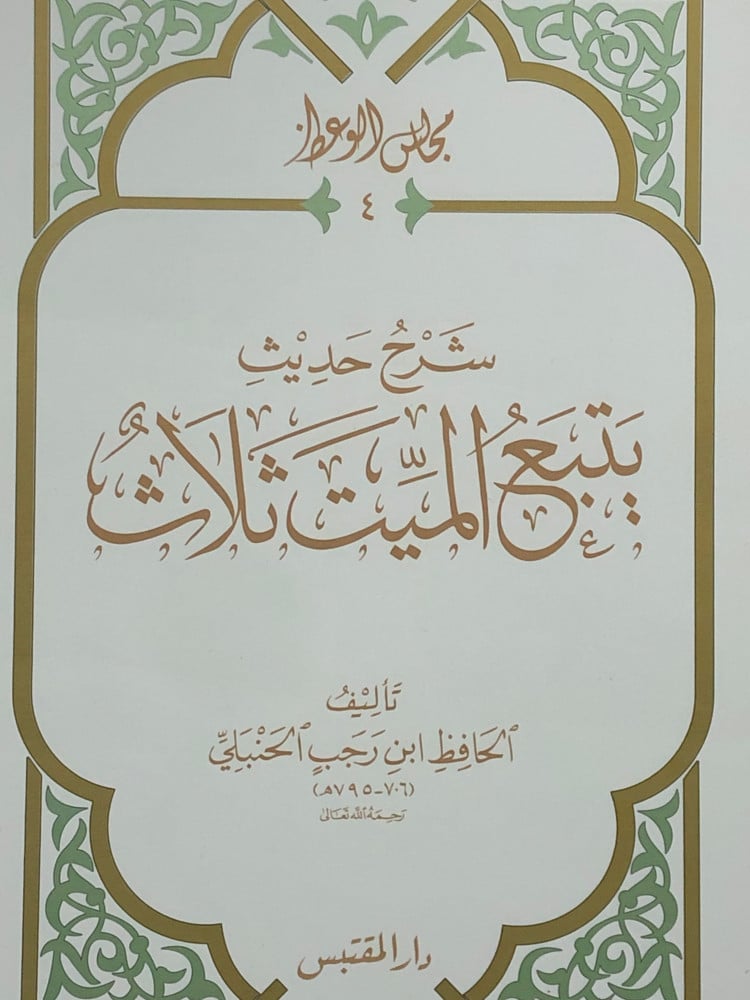 مجالس الوعظ
٤
شَرْحُ حَدِيْثِ
يَتبَعُ المَيِّتَ ثَلَاثٌ
تَأْلِيْفُ
الحَافِظِ ابنِ رَجَبٍ الحَنْبَلِيِّ
(٧٠٦-٧٩٥هـ)
رَحِمَهُ اللهُ تَعَالَىٰ
دار المقتبس